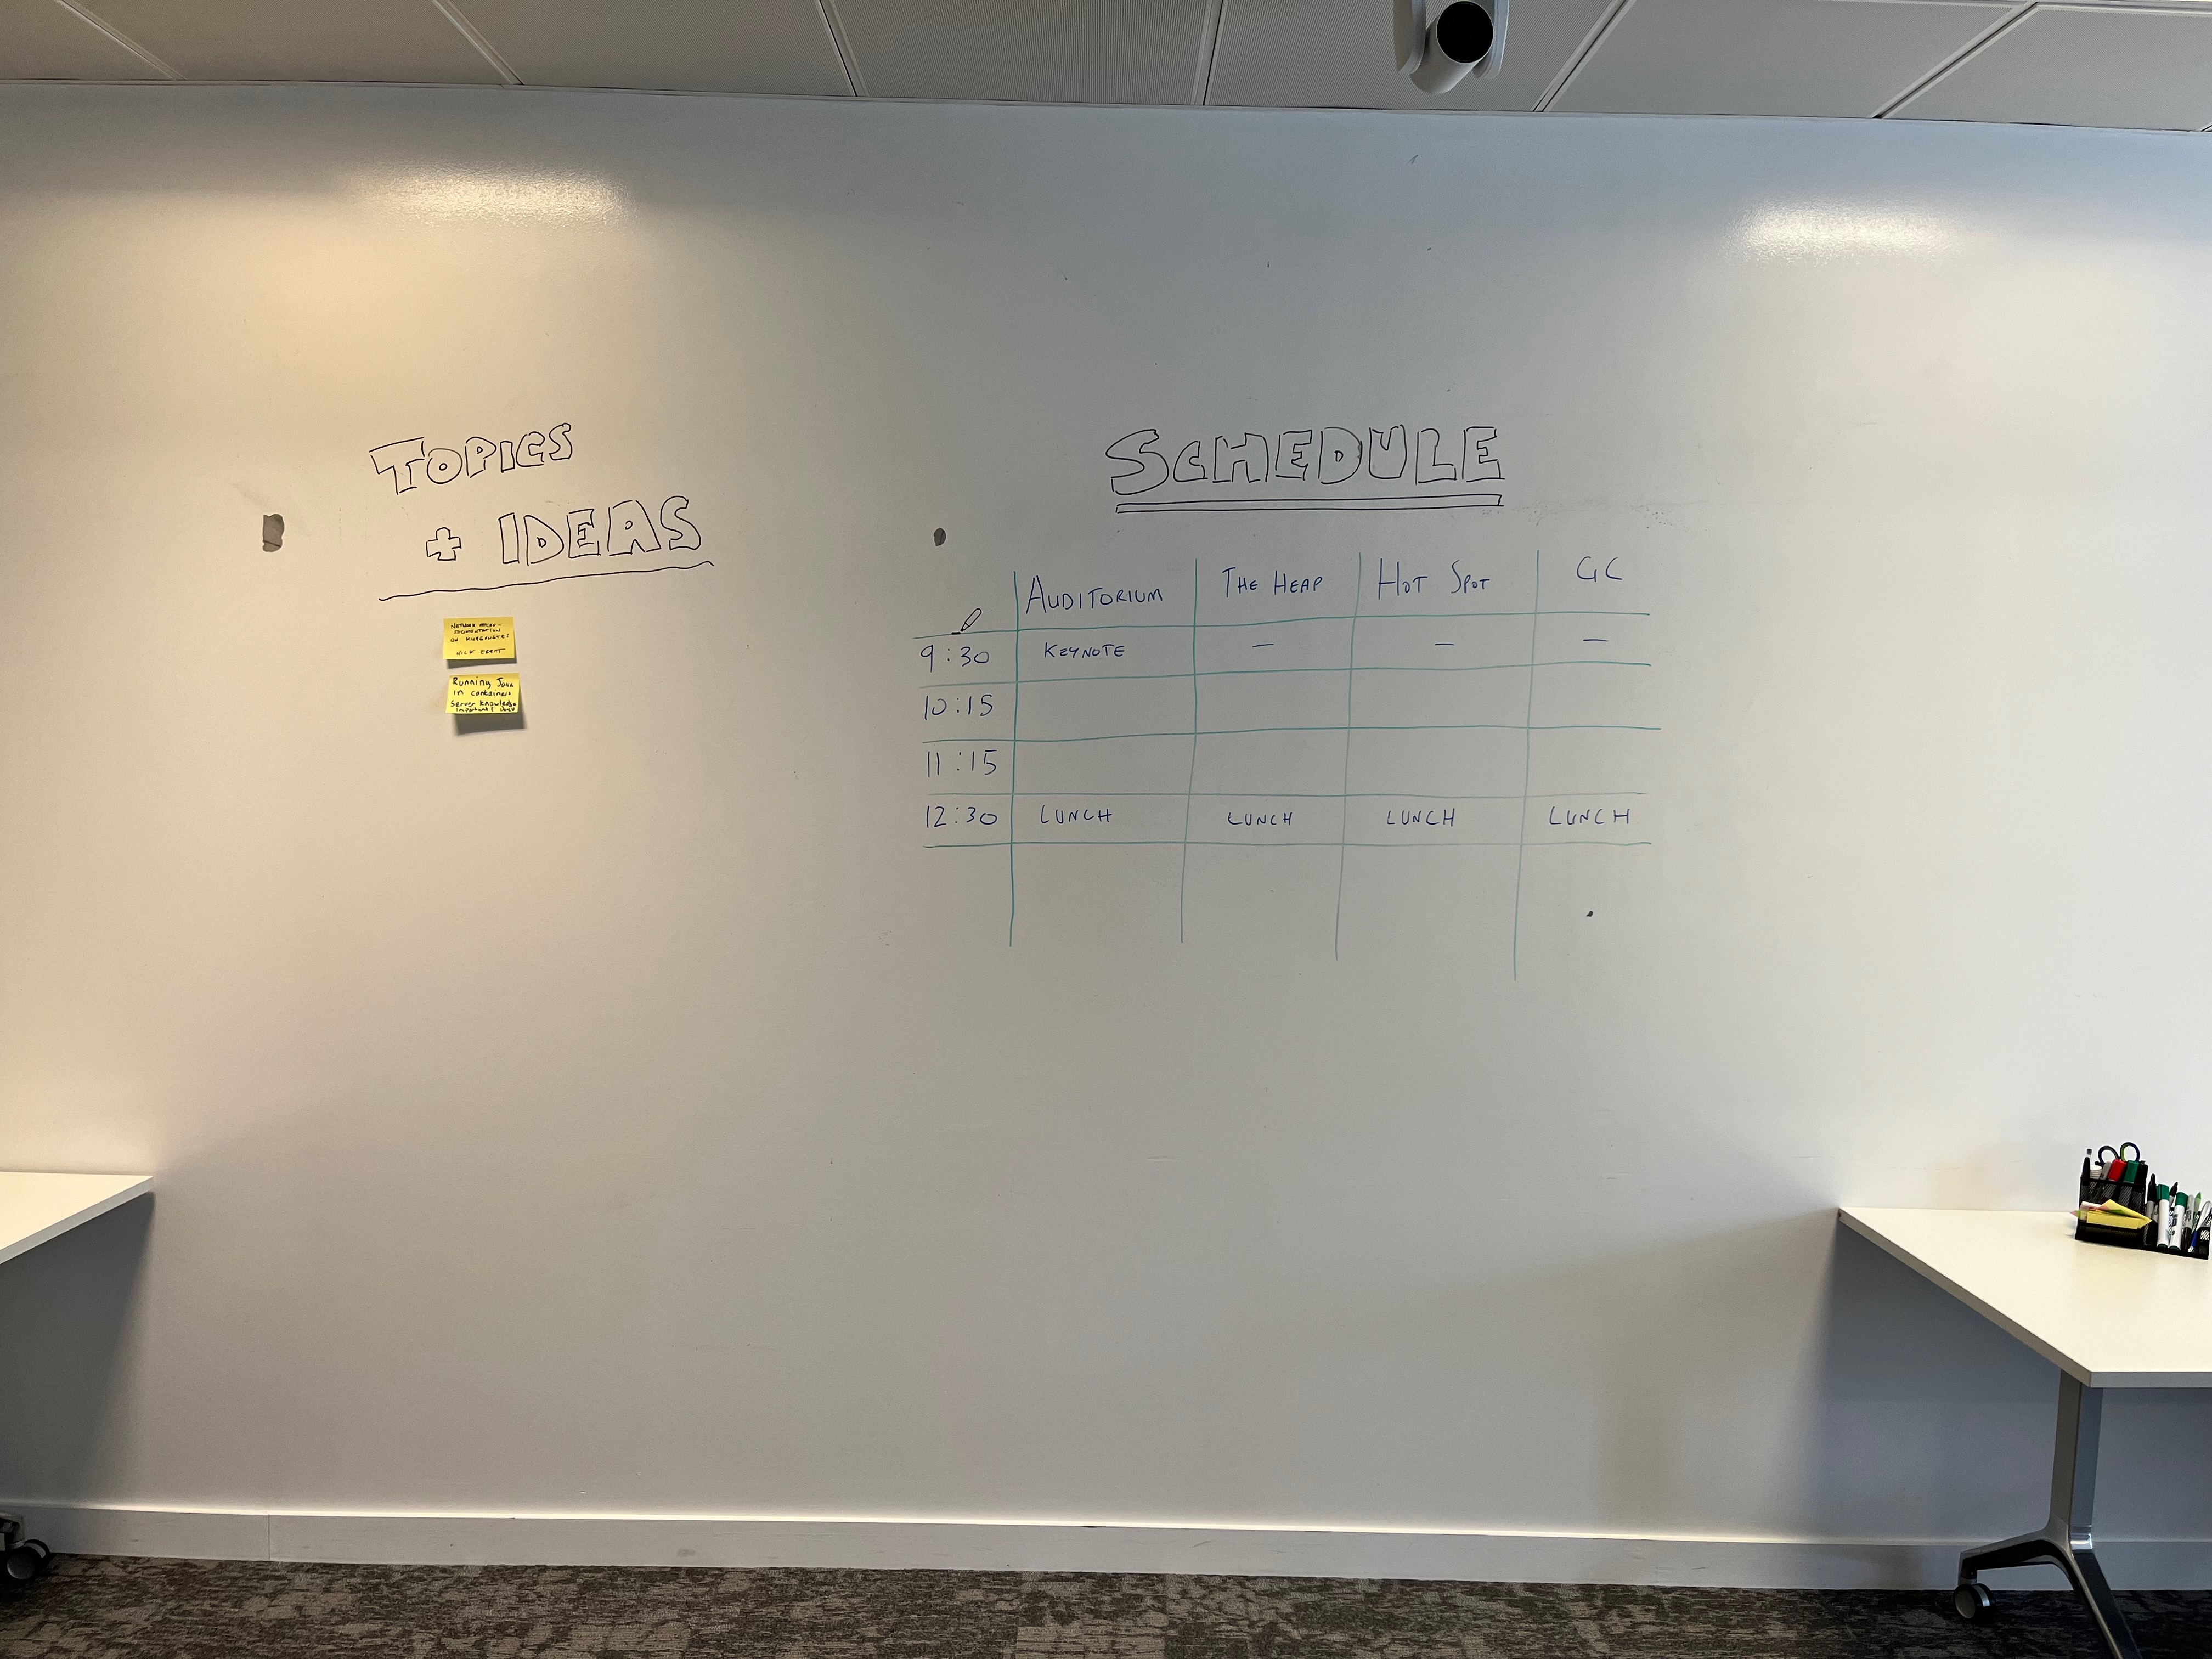 TOPICS
+ IDEAS
NETWORK MICRO-
SEGMENTATION
ON KUBERNETES
NICK EBERT
Running Java
in containers
Server knowledge
important
SCHEDULE
AUDITORIUM THE HEAP HOT SPOT GC
9:30 KEYNOTE — — —
10:15
11:15
12:30 LUNCH LUNCH LUNCH LUNCH